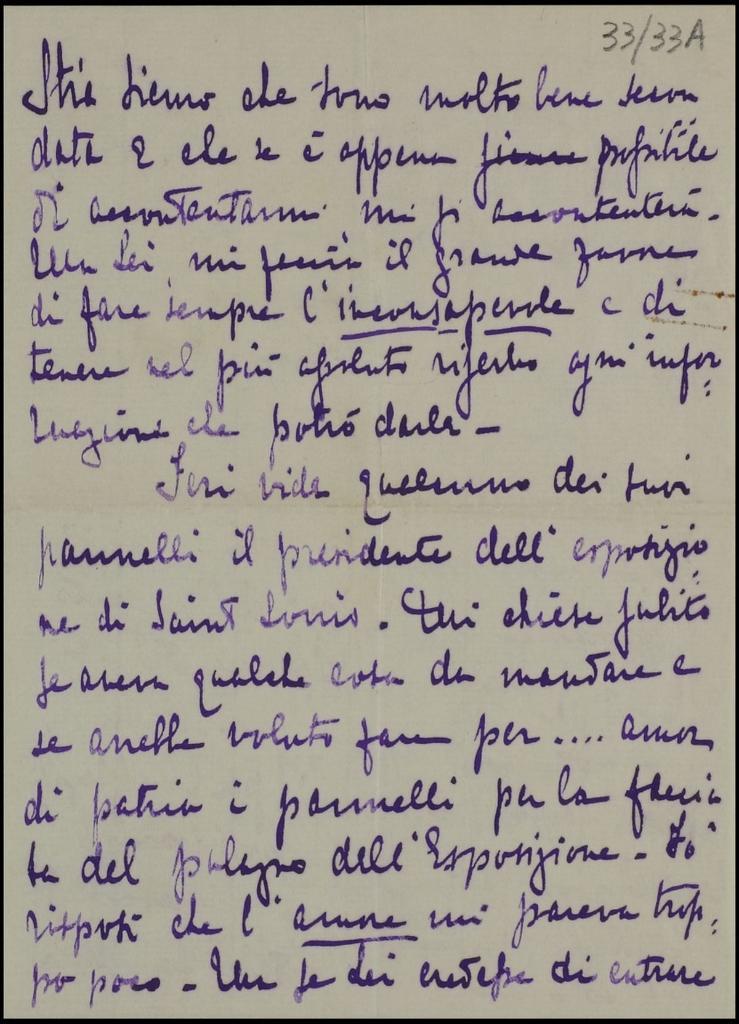 33/33A
Stia sicuro che sono molto bene secon
data e che se è appena possibile
di accontentarmi mi si accontenterà.
Ma Lei mi faccia il grande favore
di fare sempre l'inconsapevole e di
tenere nel più assoluto riserbo ogni infor=
mazione che potrò darle –
Ieri vide qualcuno dei suoi
pannelli il presidente dell'esposizio=
ne di Saint Louis. Mi chiese subito
se aveva qualche cosa da mandare e
se avesse voluto fare per.... amor
di patria i pannelli per la faccia
ta del palazzo dell'Esposizione – Io
risposi che l'amore mi pareva trop=
po poco – Ma se Lei credesse di entrare